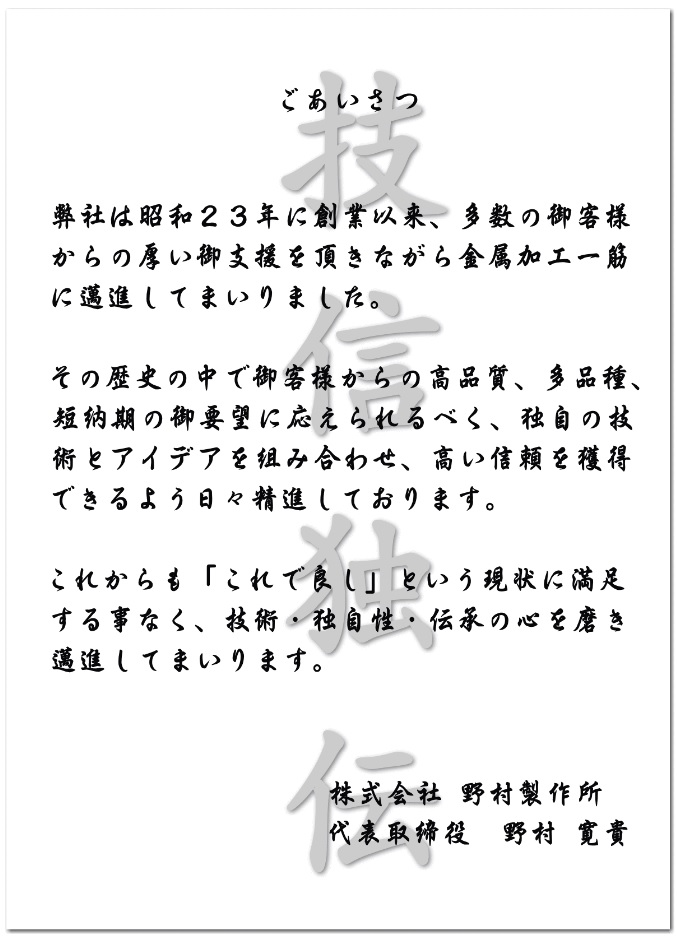 ごあいさつ
弊社は昭和２３年に創業以来、多数の御客様
からの厚い御支援を頂きながら金属加工一筋
に邁進してまいりました。
その歴史の中で御客様からの高品質、多品種、
短納期の御要望に応えられるべく、独自の技
術とアイデアを組み合わせ、高い信頼を獲得
できるよう日々精進しております。
これからも「これで良し」という現状に満足
する事なく、技術・独自性・伝承の心を磨き
邁進してまいります。
株式会社 野村製作所
代表取締役　野村 寛貴
技
信
独
伝